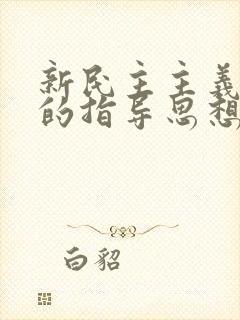 新民主主義
的指导思想
白貂